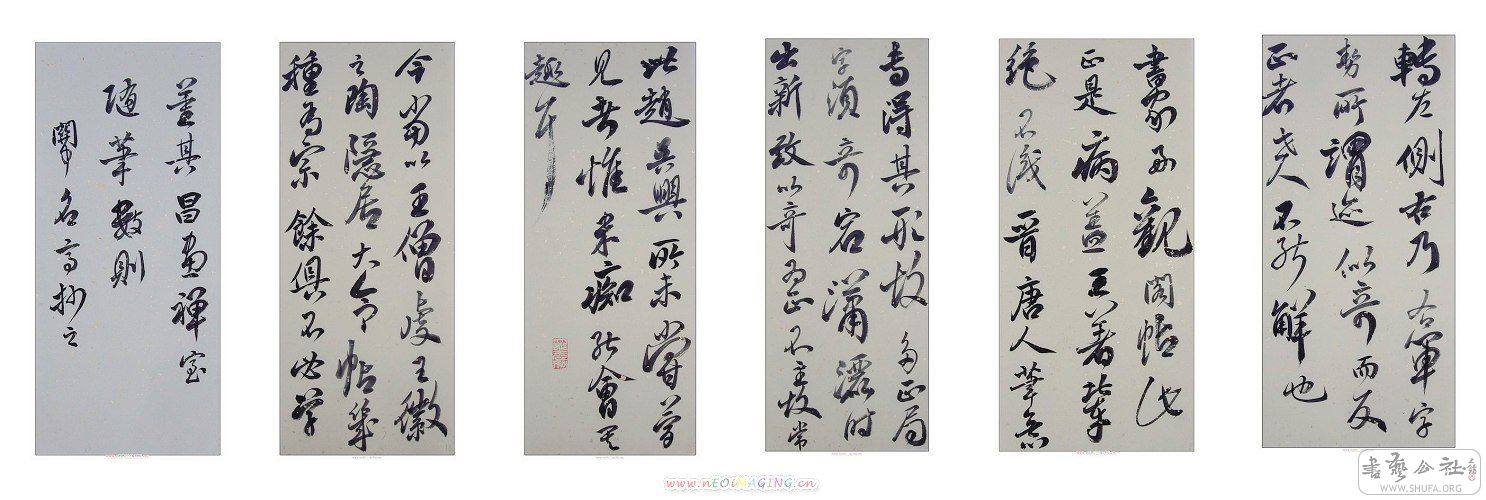 轉左側右乃右軍字
勢所謂迹似奇而反
正者世人不能解也
書家好觀閣帖此
正是病蓋王著輩
絶不識晉唐人筆意
專得其形故多正局
字須奇宕瀟灑時
出新致以奇為正不主故常
此趙吳興所未嘗夢
見者惟米痴能會其
趣耳
今當以王僧虔王徽
之陶隱居大令帖幾
種為宗餘俱不必學
董其昌畫禪室
隨筆數則
名高抄之
www.nEOiMAGING.cn
書藝公社
WWW.SHUFA.ORG